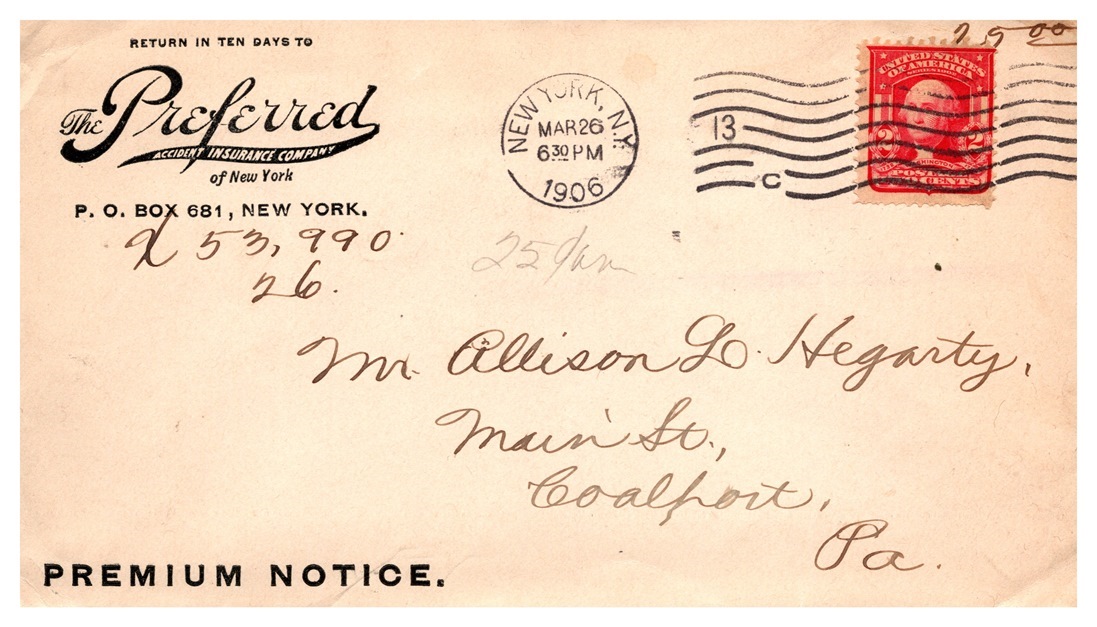 RETURN IN TEN DAYS TO
The Preferred
ACCIDENT INSURANCE COMPANY
of New York
P. O. BOX 681, NEW YORK.
X 53,990
26.
NEW YORK, N.Y.
MAR 26
6 30 PM
1906
13
C
25.00
UNITED STATES
OF AMERICA
SERIES 1902
2 2
WASHINGTON
POSTAGE
CENTS
Mr. Allison L. Hegarty,
Main St.,
Coalport,
Pa.
PREMIUM NOTICE.